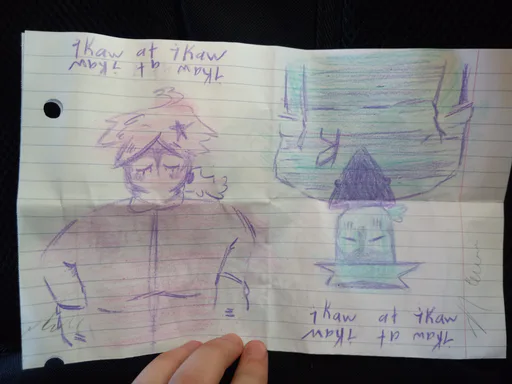 iKaw at iKaw
iKaw at iKaw
iKaw at iKaw
iKaw at iKaw